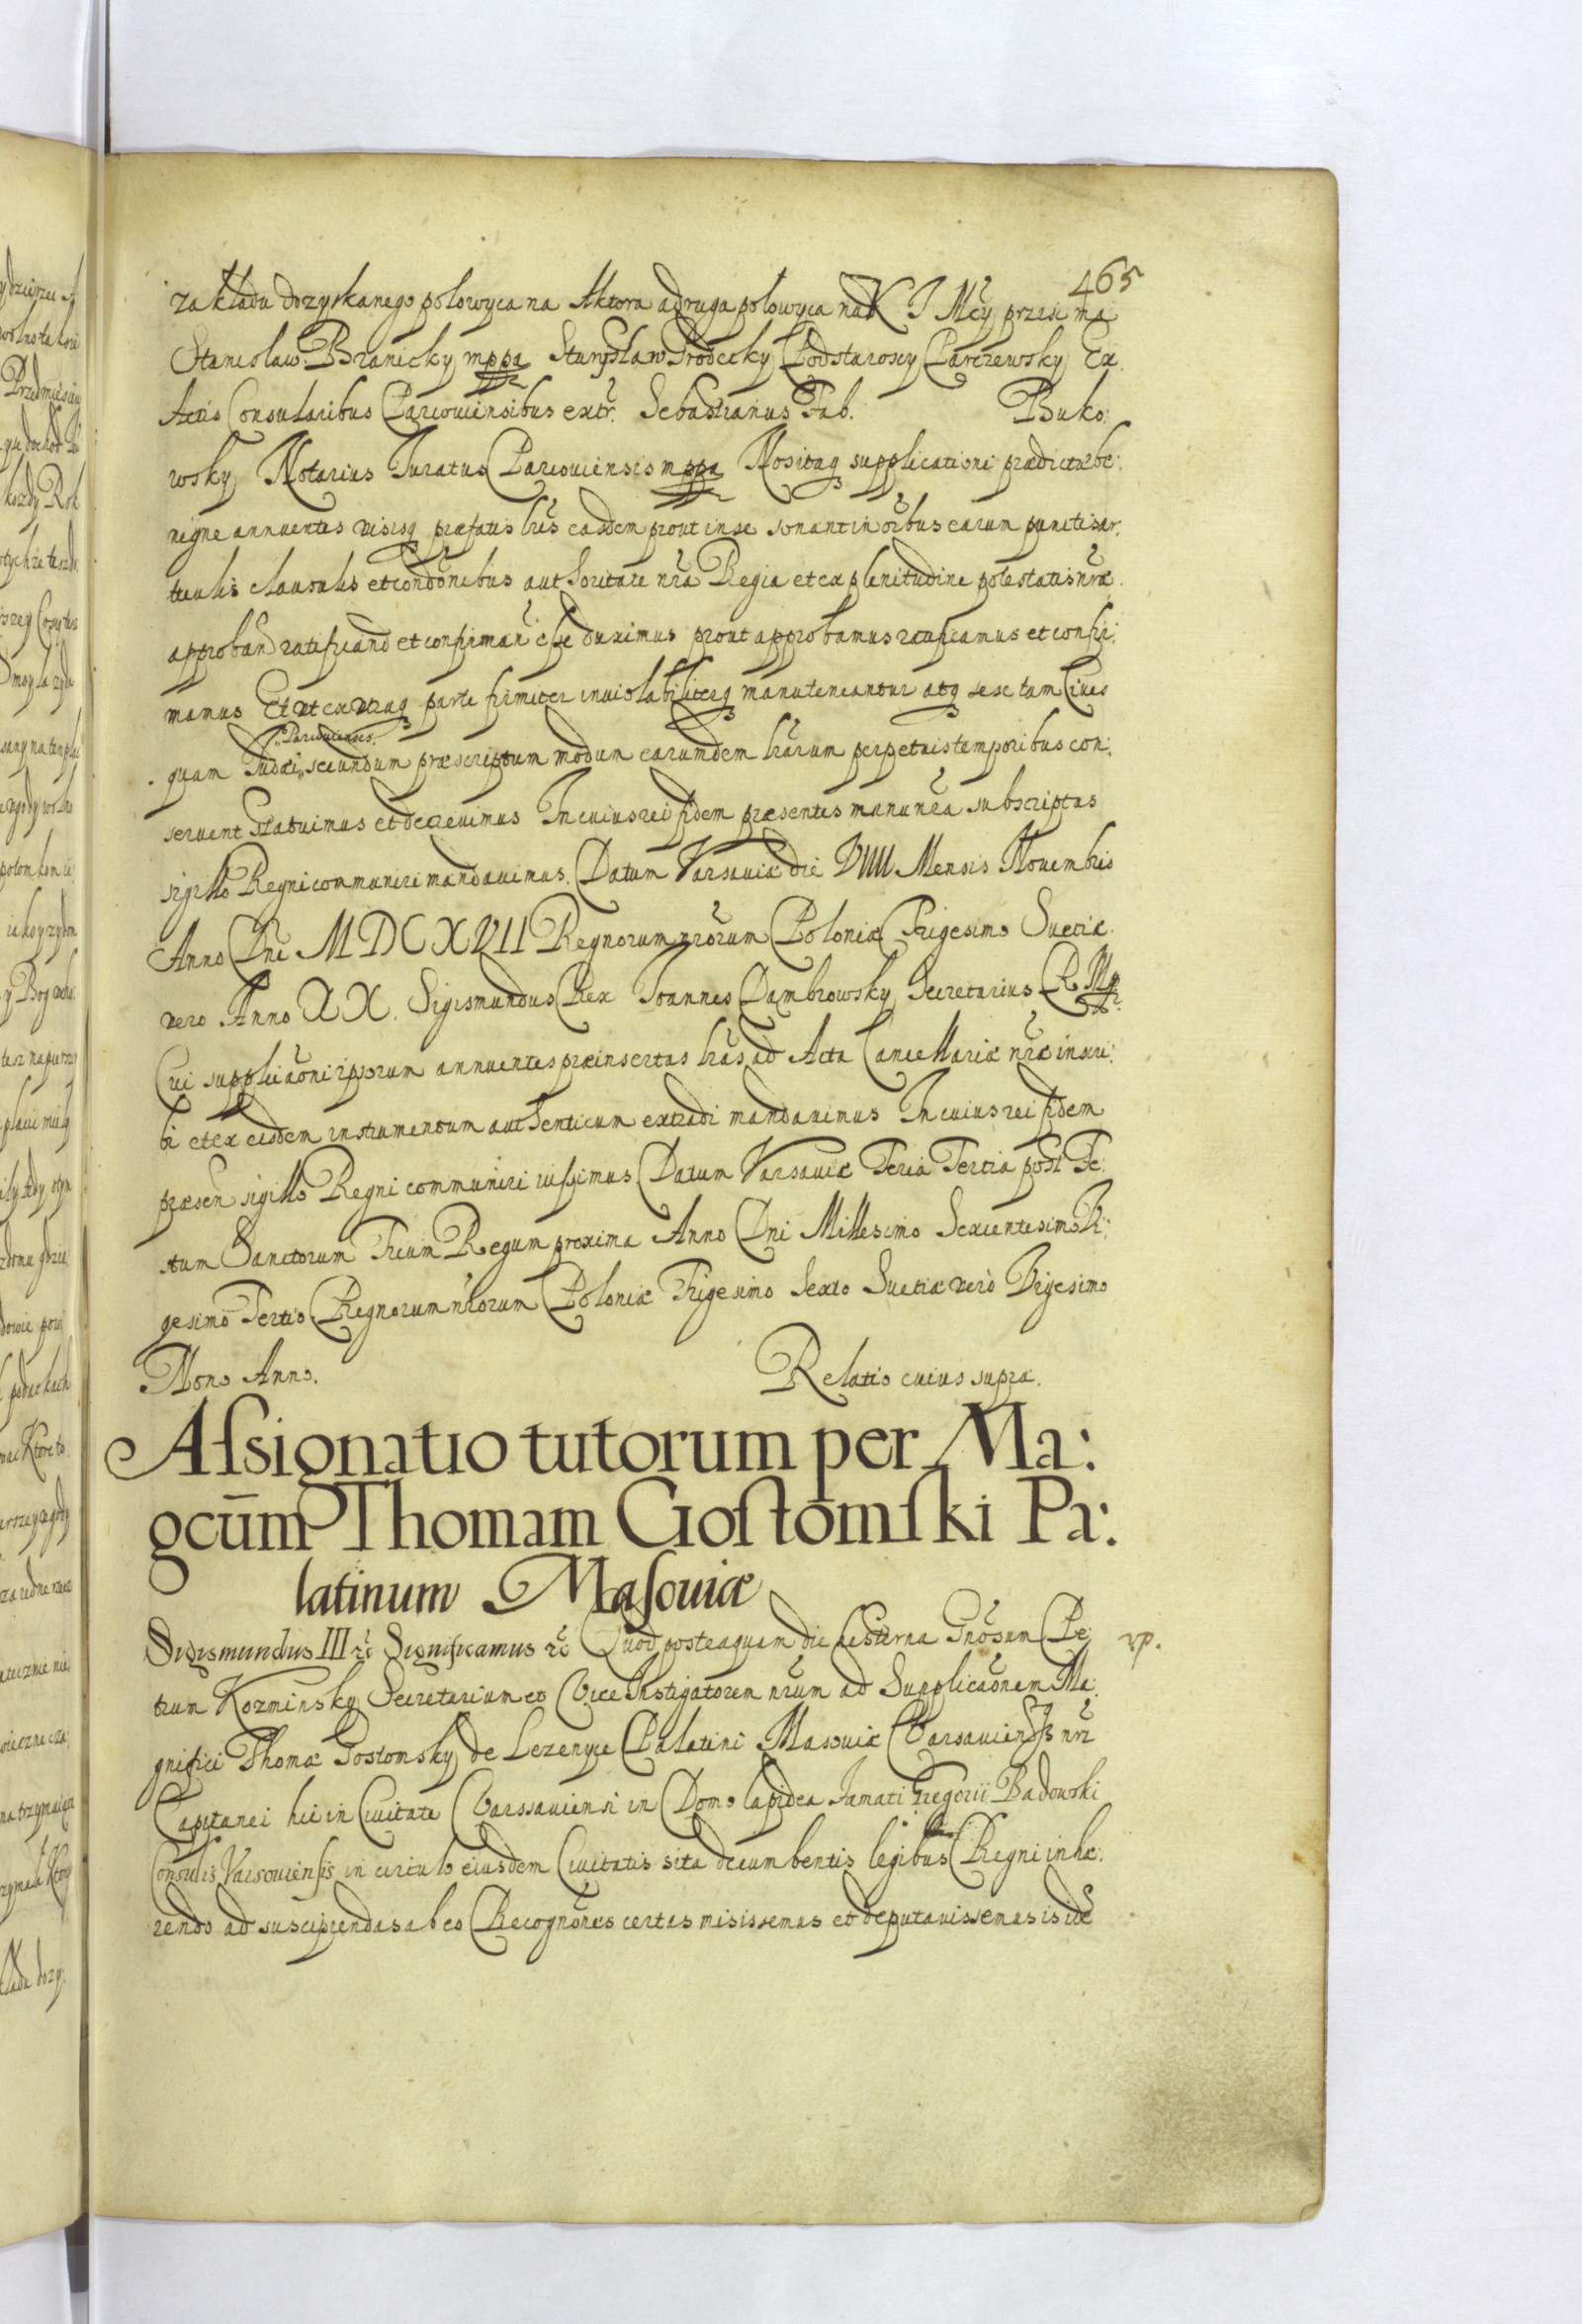 465
zakładu dozyskanego polowyca na Aktora a druga polowyca na K J Mcy przesi ma
Stanislaw Branicky mppa Stanyslaw Grodecky Podstarosci Parczewsky Ex
Actis Consularibus Parcouiensibus extr. Sebastianus Fab. Buko:
wsky Notarius Juratus Parcouiensis mppa Nos itaq supplicationi prædictæ be:
nigne annuentes visisq præfatis lris easdem prout in se sonant in oibus earum punctis ar:
ticulis clausulis et condonibus authoritate nra Regia et ex plenitudine potestatis nræ
approband ratificand et confirman esse duximus prout approbamus ratificamus et confir:
mamus Et ut ex utraq parte firmiter inuiolabiliterq manuteneantur atq sese tam Ciues
Parcouienses.
quam Judæi secundum præscriptum modum earumdem lrarum perpetuis temporibus con:
seruent Statuimus et decreuimus In cuius rei fidem præsentes manu nra subscriptas
sigillo Regni communiri mandauimus. Datum Varsauiæ die VIIII Mensis Nouembris
Anno Dni MDCXVII Regnorum nrorum Poloniæ Trigesimo Suetiæ
vero Anno XX. Sigismundus Rex Joannes Dambrowsky Secretarius R Mp
Cui supplicaoni ipsorum annuentes præinsertas lras ad Acta Cancellariæ nræ inscri:
bi et ex eisdem instrumentum authenticum extradi mandauimus In cuius rei fidem
præsen sigillo Regni communiri iussimus Datum Varsauiæ Feria Tertia post Fe:
stum Sanctorum Trium Regum proxima Anno Dni Millesimo Sexcentesimo Vi:
gesimo Tertio Regnorum nrorum Poloniæ Trigesimo Sexto Suetiæ vero Vigesimo
Nono Anno. Relatio cuius supra.
Aſsignatio tutorum per Ma:
gcūm Thomam Goſtomſki Pa:
latinum Maſouiæ
Sigismundus III rc Significamus rc Quod posteaquam die hesterna Gnosum Pe
trum Kozminsky Secretarium et Vice Instigatorem nrum ad Supplicaonem Ma:
gnifici Thomæ Gostomsky de Lezenyce Palatini Masouiæ Varsauien nri
Capitanei hic in Ciuitate Varssauiensi in Domo lapidea Famati Gregorii Badowski
Consulis Varsouiensis in circulo eiusdem Ciuitatis sita decumbentis legibus Regni inhæ:
rendo ad suscipiendas ab eo Recognones certas misissemus et deputauissemus is ide